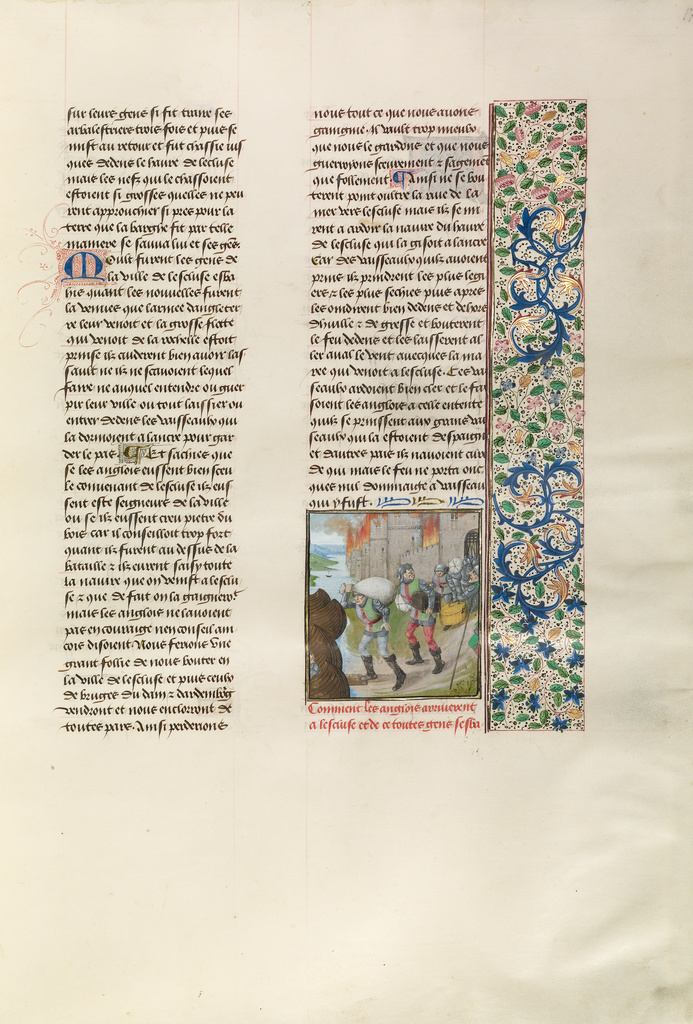 sur leurs gens si fit traire ses
arbalestriers trois fois et puis se
mist au retour et fut chassie ius
ques dedens le haure de lescluse
mais les nefz qui le chassoient
estoient si grosses quelles ne peu
rent approuchier si pres pour la
terre que la barghe fit par telle
maniere se sauua lui et ses gens.
Moult furent les gens de
la ville de lescluse esba
his quant les nouuelles furent
la venues que larmee dangleter
re leur venoit et la grosse flotte
qui venoit de la rochelle estoit
prinse ilz cuiderent bien auoir las
sault ne ilz ne scauoient lequel
faire ne auquel entendre ou guer
pir leur ville ou tout laissier ou
entrer dedens les vaisseaulx qui
la dormoient a lancre pour gar
der le pas. Et sachies que
se les anglois eussent bien sceu
le conuenant de lescluse ilz eus
sent este seigneurs de la ville
ou se ilz eussent creu pietre du
bois car il conseilloit trop fort
quant ilz furent au dessus de la
bataille z ilz eurent saisy toute
la nauire que on venist a lesclu
se z que de fait on la gaigneroit
mais les anglois ne lauoient
pas en couraige nen conseil ain
cois disoient. Nous ferions vne
grant follie de nous bouter en
la ville de lescluse et puis ceulx
de bruges du dam z dardembourg
vendront et nous encloront de
toutes pars. Ainsi perderions
nous tout ce que nous auons
gaingnie. Il vault trop mieulx
que nous le gardons et que nous
guerroyons seeurement z sagement
que follement. Ainsi ne se bou
terent point oultre la riue de la
mer vers lescluse mais ilz se mi
rent a ardoir la nauire du haure
de lescluse qui la gisoit a lancre
Car des vaisseaulx quilz auoient
prins ilz prindrent les plus legi
ers z les plus seches puis apres
les oindirent bien dedens et dehors
dhuille z de gresse et bouterent
le feu dedens et les laisserent al
ler aual le vent auecques la ma
ree qui venoit a lescluse. Ces vais
seaulx ardoient bien cler et le fai
soient les anglois a celle entente
quilz se preissent aux grans vais
seaulx qui la estoient despaigne
et dautres pais ilz nauoient cure
de qui mais le feu ne porta onc
ques nul dommaige a vaisseau
qui y fust.
Comment les anglois arriuerent
a lescluse et de ce toutes gens sesba